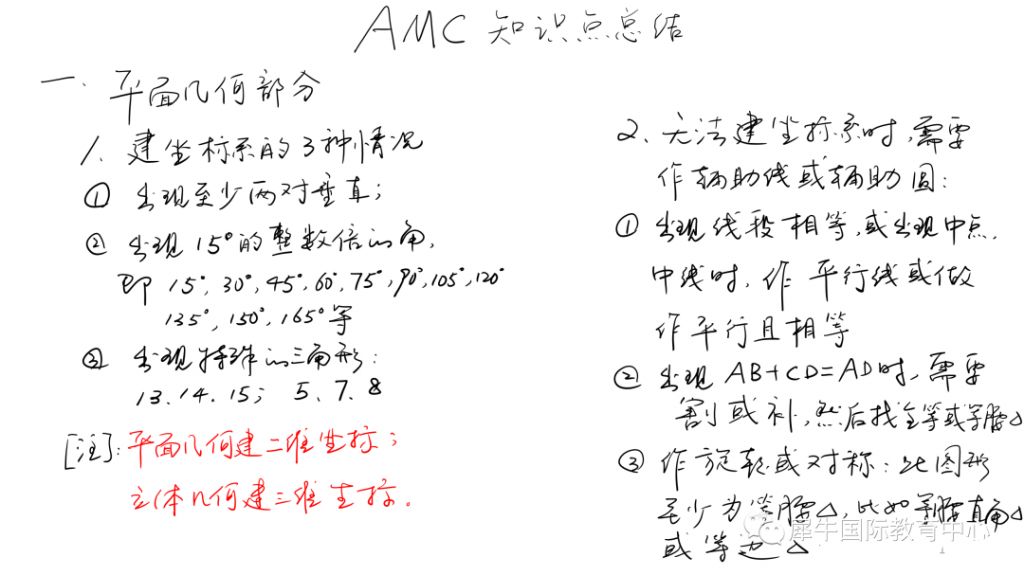 AMC 知识点总结
一. 平面几何部分
1. 建坐标系的3种情况
① 出现至少两对垂直;
② 出现15°的整数倍的角,
即 15°, 30°, 45°, 60°, 75°, 90°, 105°, 120°
135°, 150°, 165°等
③ 出现特殊的三角形:
13. 14. 15; 5. 7. 8
[注]: 平面几何建二维坐标;
立体几何建三维坐标.
2. 无法建坐标系时, 需要
作辅助线或辅助圆:
① 出现线段相等, 或出现中点.
中线时, 作平行线或做
作平行且相等
② 出现 AB+CD=AD时, 需要
割或补, 然后找全等或等腰△
③ 作旋转或对称: 此图形
至少为等腰△, 比如等腰直角△
或等边△
犀牛国际教育中心